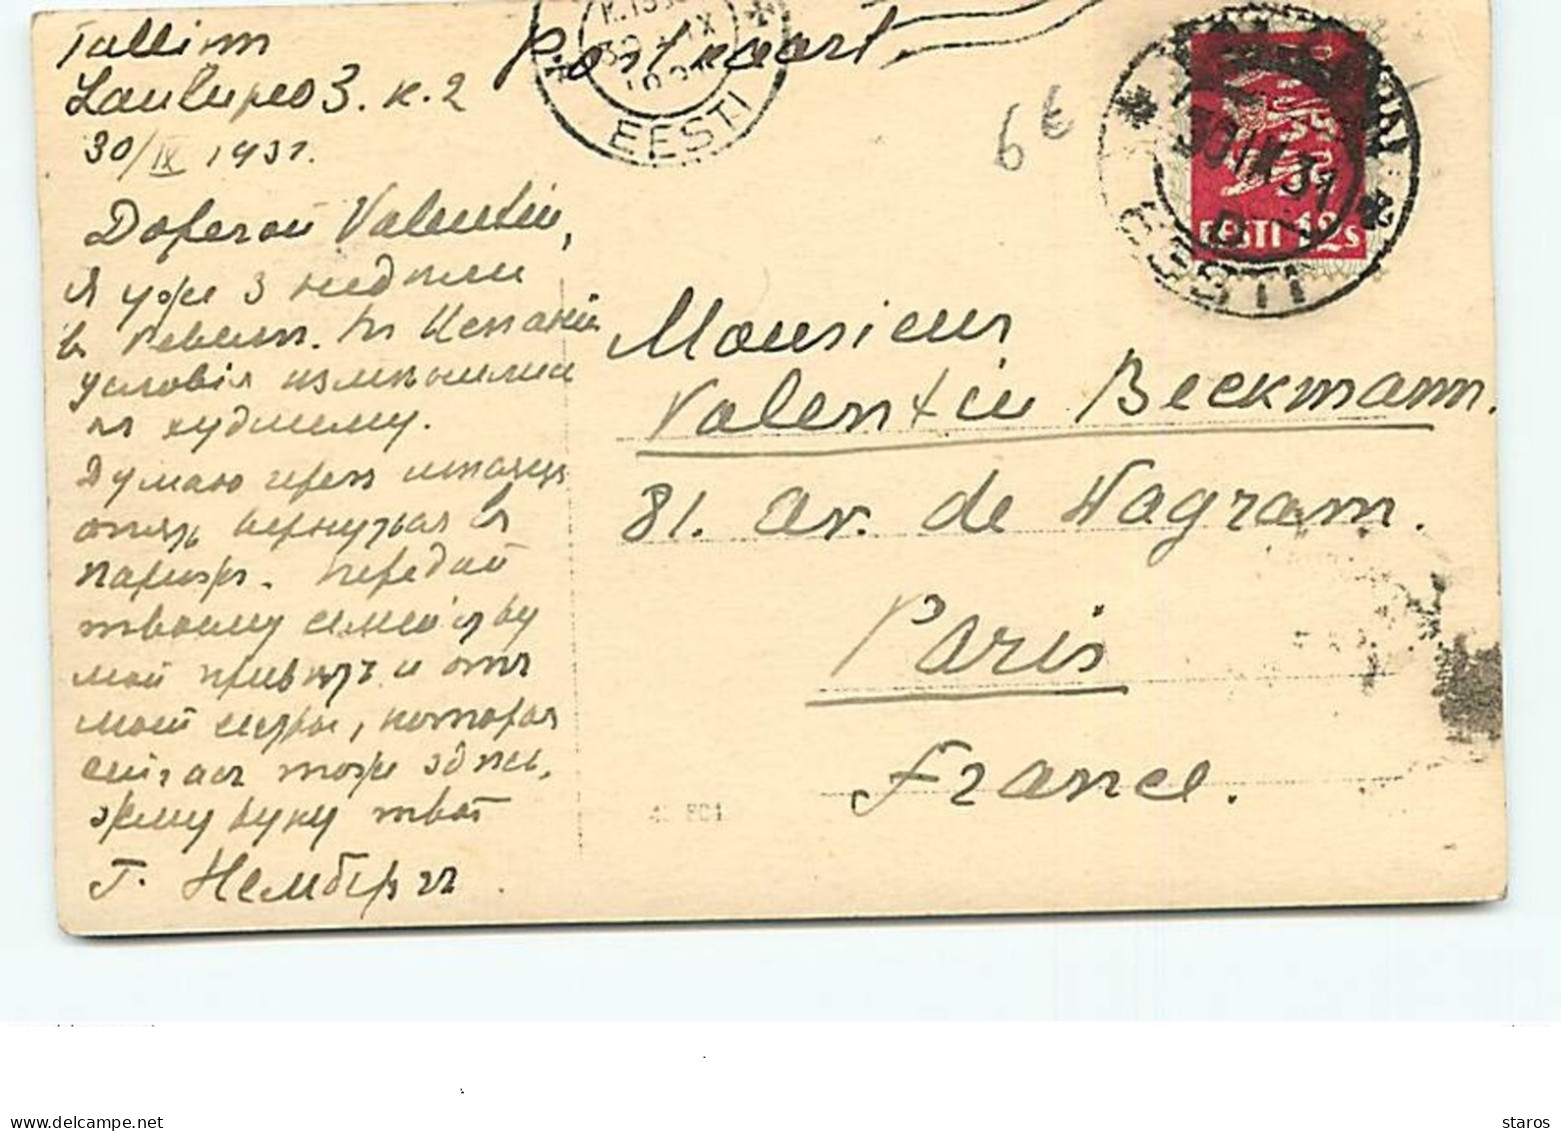 Tallinn
3. к. 2
30/IX 1931.
Postkaart
EESTI
6€
30 IX 31
EESTI
EESTI 12s
Дорогой Valentin,
Я уже 3 недѣли
въ Ревелѣ. Въ Испаніи
условія измѣнились
къ худшему.
Думаю черезъ мѣсяцъ
опять вернуться въ
Парижъ. Передай
твоему семейству
мой привѣтъ и отъ
моей сестры, которая
сейчасъ тоже здѣсь.
Жму руку твой
Г.
Monsieur
Valentin Beckmann.
81. av. de Wagram.
Paris
France.
www.delcampe.net
staros